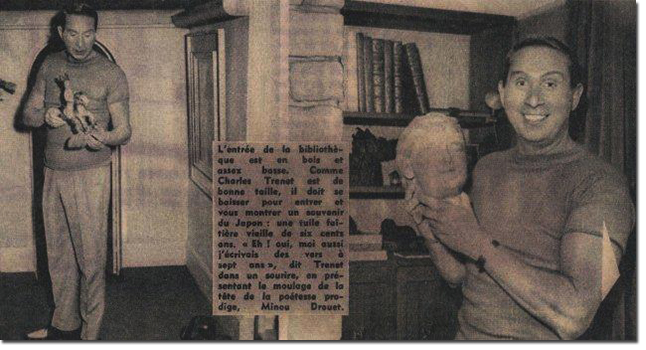 L'entrée de la bibliothè-
que est en bois et
assez basse. Comme
Charles Trenet est de
bonne taille, il doit se
baisser pour entrer et
vous montrer un souvenir
du Japon : une tuile faî-
tière vieille de six cents
ans. « Eh ! oui, moi aussi
j'écrivais des vers à
sept ans », dit Trenet
dans un sourire, en pré-
sentant le moulage de la
tête de la poétesse pro-
dige, Minou Drouet.